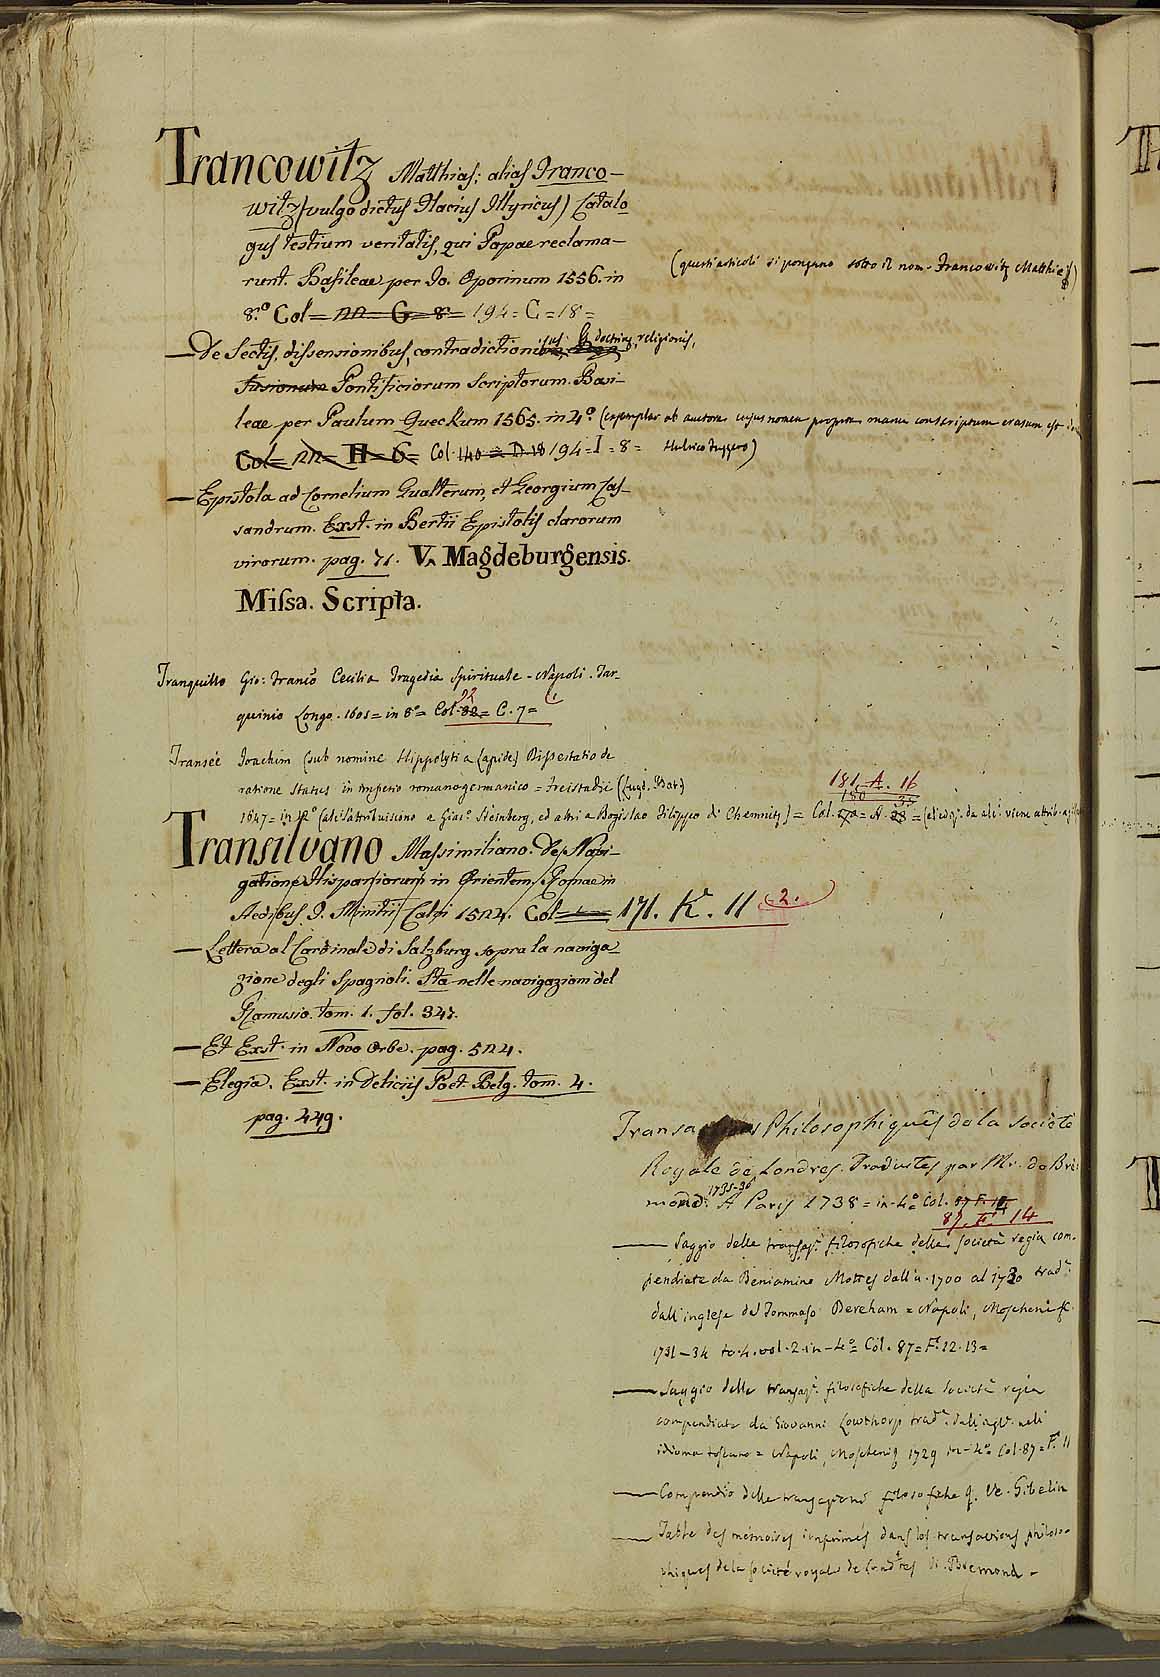 Trancowitz Matthias; alias Franco-
witz (vulgo dictus Flacius Illyricus) Catalo
gus testium veritatis, qui Papae reclama-
runt. Basileae per Io. Oporinum 1556. in
8.º Col= nn= G= 8= 194= C= 18=
(questi articoli si pongano sotto il nom. Francowitz Matthias)
— De Sectis, dissensionibus, contradictionibus & doctrinæ, religionis,
fusionum Pontificiorum Scriptorum. Basi-
leae per Paulum Queckum 1565. in 4º. (exemplar ab auctore cujus nomen propria manu conscriptum erasum est
Col= nn= H= 6= Col. 140= D. 18 194= I= 8= Hulrico Fuggero)
— Epistola ad Cornelium Gualterum, et Georgium Cas-
sandrum. Exst. in Bertii Epistolis clarorum
virorum. pag. 71. V. Magdeburgensis.
Missa. Scripta.
Tranquillo Gio: Franco Cecilia Tragedia Spirituale - Napoli. Tar-
quinio Longo. 1601= in 8º= Col. 82= C. 7=
Transée Joachim (sub nomine Hippolyti a Lapide) Dissertatio de
ratione Status in Imperio romano germanico = Freistadii (Lugd. Bat.)
181. A. 16
1647= in 12º (altri l'attribuiscono a Giac. Steinberg, ed altri a Bogislao Filippo di Chemnitz) = Col.
Transilvano Massimiliano. De Navi-
gatione Hispaniorum in Orientem. Romae in
Aedibus F. Minitii Calvi 1524. Col= 171. K. 11 (2.)
— Lettera al Cardinale di Salzburg sopra la naviga-
zione degli Spagnoli. Sta nelle navigazioni del
Ramusio. tom. 1. fol. 347.
— Et Exst. in Novo Orbe. pag. 524.
— Elegia. Exst. in deliciis Poet. Belg. tom. 4.
pag. 449.
Transactions Philosophiques de la Societè
Royale de Londres. Traduites par Mr. de Bre
mond. 1735-36 A Paris 1738= in-4º Col. 87 F.
87. F. 14
— Saggio delle transaz. filosofiche della società regia com-
pendiate da Beniamino Mottes dall'a. 1700 al 1720 trad.
dall'inglese da Tommaso Dereham = Napoli, Moscheni &c.
1731-34 to. 4. vol. 2. in-4º= Col. 87= F. 12. 13=
— Saggio delle transaz. filosofiche della società regia
compendiate da Giovanni Lowthorp trad. dall'ingl. nell'
idioma toscano= Napoli, Moscheni 1729 in-4º= Col. 87= F. 11
— Compendio delle transazioni filosofiche &. Ve. Gibelin
— Table des mémoires imprimés dans les transactions philoso-
phiques de la société royale de Londres V. Bremond.